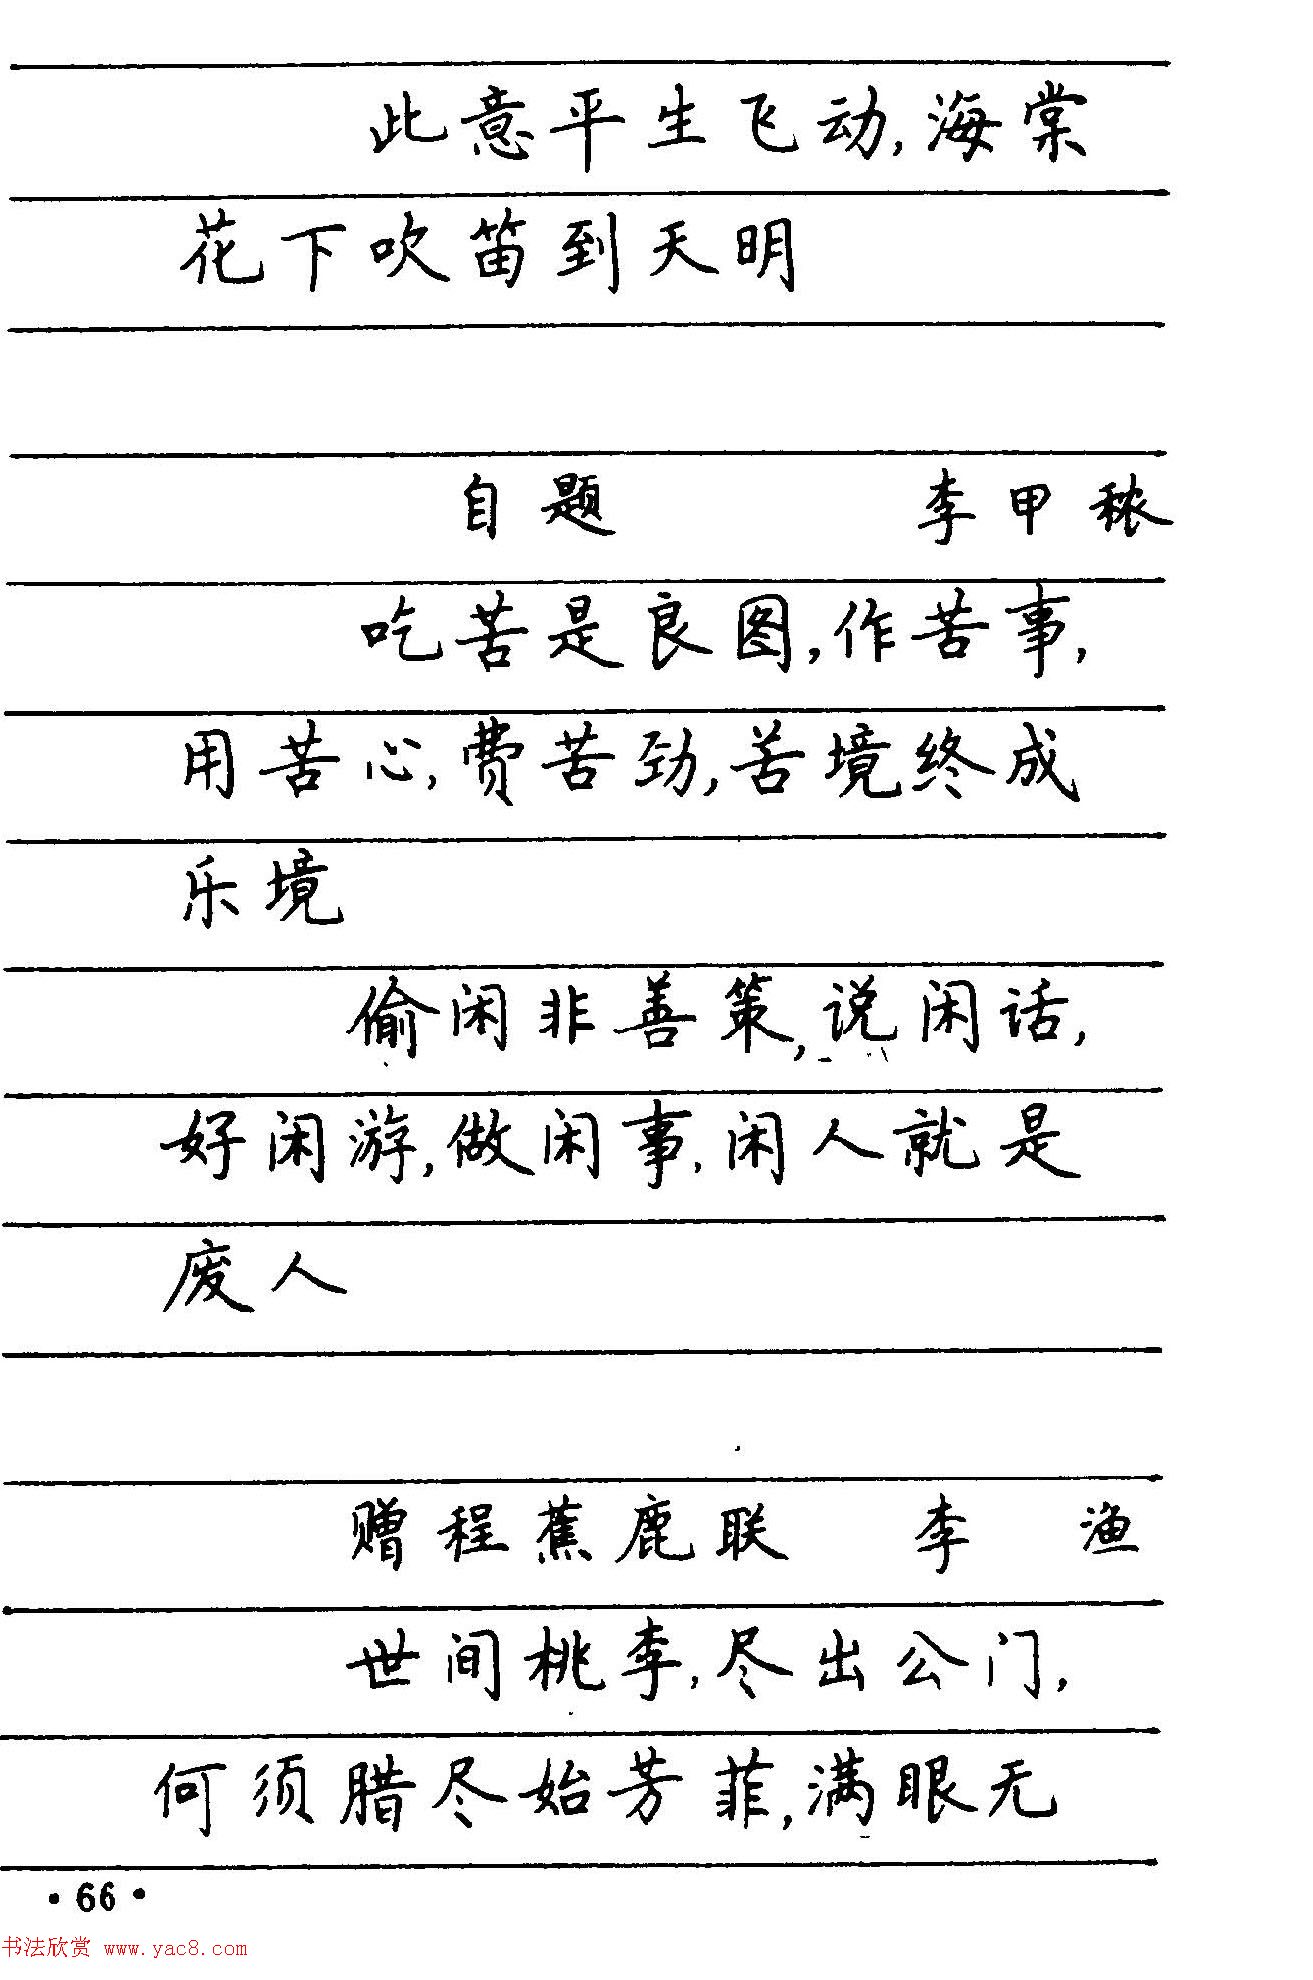 此意平生飞动,海棠
花下吹笛到天明
自题 李甲秾
吃苦是良图,作苦事,
用苦心,费苦劲,苦境终成
乐境
偷闲非善策,说闲话,
好闲游,做闲事,闲人就是
废人
赠程蕉鹿联 李 渔
世间桃李,尽出公门,
何须腊尽始芳菲,满眼无
·66·
书法欣赏 www.yac8.com